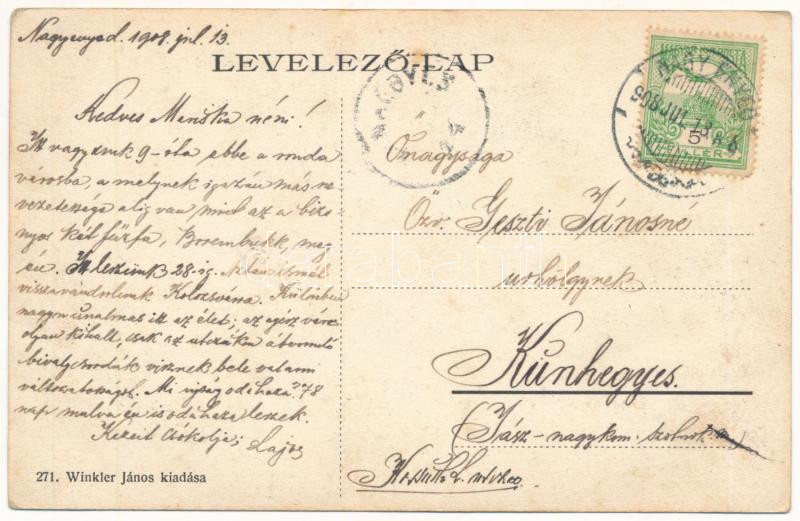 Nagyenyed. 1908. júl. 13.
LEVELEZŐ-LAP
Kedves Mariska néni!
Itt vagyunk 9-óta ebbe a ruda
városba, a melynek igazán más ne-
vezetessége alig van mint az a bizo-
nyos két fűzfa, Borembukk, meg
én. Itt leszünk 28-ig. Aztán ismét
visszavándorlunk Kolozsvárra. Különben
nagyon unalmas itt az élet; az egész város
olyan kihalt, csak az utczákon átvonuló
bivalycsordák visznek bele valami
változatosságot. Mi ujság odahaza? 78
nap mulva én is odahaza leszek.
Kezeit csókolja; Lajos
271. Winkler János kiadása
Őnagysága
Özv. Geszti Jánosné
urhölgynek
Kunhegyes.
(Jász-nagykun. Szolnok m)
Kossuth L. utcza
NAGY-ENYED
908 JUL 13
MAGYAR
5
FILLÉR
darabanth